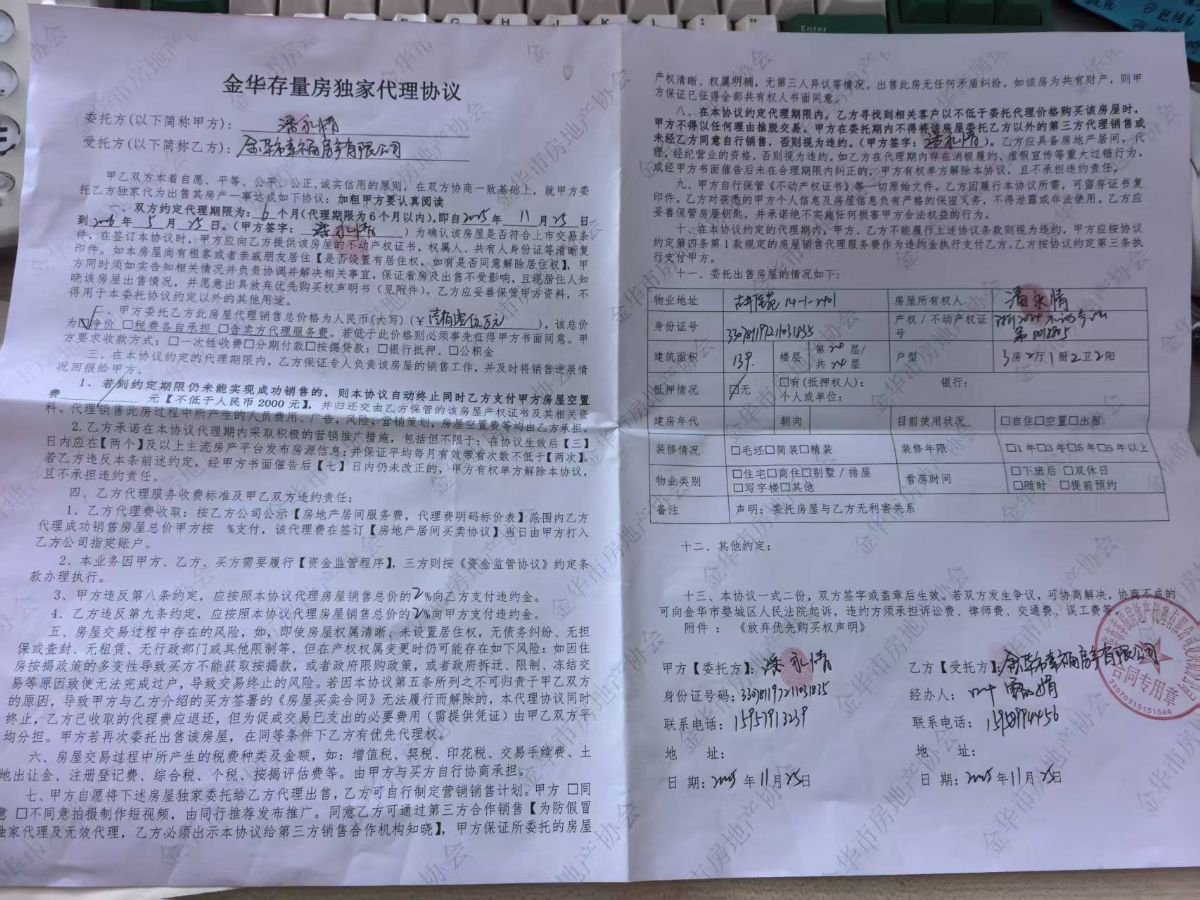 金华存量房独家代理协议
委托方(以下简称甲方): 潘永情
受托方(以下简称乙方): 房产有限公司
甲乙双方本着自愿、平等、公平、公正、诚实信用的原则，在双方协商一致基础上，就甲方委
托乙方独家代为出售其房产一事达成如下协议: 加粗甲方要认真阅读
一、双方约定代理期限为: 6 个月(代理期限为6个月以内)，即自2025年 11 月 25 日
到2026年 5 月 25 日。(甲方签字: 潘永情 )为确认该房屋是否符合上市交易条
件，在签订本协议时，甲方应向乙方提供该房屋的不动产权证书，权属人、共有人身份证等清晰复
印件。如本房屋尚有租客或者亲戚朋友居住【是否设置有居住权，如有是否同意解除居住权】，甲
方同时须如实告知相关情况并负责协调并解决相关事宜，保证看房及出售不受影响，且现居住人知
晓该房屋出售情况，并愿意出具放弃优先购买权声明书（见附件）。乙方应妥善保管甲方资料，不
得用于本委托协议约定以外的其他用途。
二、甲方委托乙方出售总价格为人民币(大写)(￥ 万元 )，该总价
为☑净价 □税费各自承担 □含卖方代理服务费。若低于此价格则必须事先征得甲方书面同意。甲
方要求收款方式: □一次性收费□分期付款□按揭贷款: □银行抵押、□公积金
三、在本协议约定的代理期限内，乙方保证专人负责该房屋的销售工作，并及时将销售进展情
况回报给甲方。
1、若到约定期限仍未能实现成功销售的，则本协议自动终止同时乙方支付甲方房屋空置
费 元【不低于人民币2000元】，并归还交由乙方保管的该房屋产权证书及其相关资
料。代理销售此房过程中所产生的人员费用、广告，风险，营销策划，房屋空置费等均由乙方承担。
2.乙方承诺在本协议代理期内采取积极的营销推广措施，包括但不限于: 在协议生效后【三】
日内应在【两个】及以上主流房产平台发布房源信息; 并保证平均每月有效带看次数不低于【两次】，
若乙方违反本条前述约定，经甲方书面催告后【七】日内仍未改正的，甲方有权单方解除本协议，
且不承担违约责任。
四、乙方代理服务收费标准及甲乙双方违约责任:
1、乙方代理费收取: 按乙方公司公示【房地产居间服务费，代理费明码标价表】范围内乙方
代理成功销售房屋总价甲方按 %支付，该代理费在签订【房地产居间买卖协议】当日由甲方打入
乙方公司指定账户。
2、本业务因甲方、乙方、买方需要履行【资金监管程序】，三方则按《资金监管协议》约定条
款办理执行。
3、甲方违反第八条约定，应按照本协议代理房屋销售总价的2%向乙方支付违约金。
4、乙方违反第九条约定，应按照本协议代理房屋销售总价的2%向甲方支付违约金。
五、房屋交易过程中存在的风险，如，即使房屋权属清晰、未设置居住权，无债务纠纷、无担
保或查封、无租赁、无行政部门或其他限制等，但在产权权属变更时仍可能存在如下风险: 如因住
房按揭政策的多变性导致买方不能获取按揭款，或者政府限购政策，或者政府拆迁、限制、冻结交
易等原因致使无法完成过户，导致交易终止的风险。若因本协议第五条所列之不可归责于甲乙双方
的原因，导致甲方与乙方介绍的买方签署的《房屋买卖合同》无法履行而解除的，本代理协议同时
终止，乙方已收取的代理费应退还，但为促成交易已支出的必要费用(需提供凭证)由甲乙双方平
均分担。甲方若再次委托出售该房屋，在同等条件下乙方有优先代理权。
六、房屋交易过程中所产生的税费种类及金额，如: 增值税、契税、印花税、交易手续费、土
地出让金、注册登记费、综合税、个税、按揭评估费等。由甲方与买方自行协商承担。
七、甲方自愿将下述房屋独家委托给乙方代理出售，乙方可自行制定营销销售计划。甲方 □同
意 □不同意拍摄制作短视频，由同行推荐发布推广。同意乙方可通过第三方合作销售【为防假冒
独家代理及无效代理，乙方必须出示本协议给第三方销售合作机构知晓】，甲方保证所委托的房屋
产权清晰、权属明确，无第三人异议等情况，出售此房无任何矛盾纠纷，如该房为共有财产，则甲
方保证已征得全部共有权人书面同意。
八、在本协议约定代理期限内。乙方寻找到相关客户以不低于委托代理价格购买该房屋时，
甲方不得以任何理由推脱交易。甲方在委托期内不得将该房屋委托乙方以外的第三方代理销售或
未经乙方同意自行销售，否则视为违约。(甲方签字: 潘永情 )。乙方应具备房地产居间，代
理，经纪营业的资格，否则视为违约。如乙方在代理期内存在消极履约、虚假宣传等重大过错行为，
或经甲方书面催告后未在合理期限内纠正的，甲方有权单方解除本协议，且不承担违约责任。
九、甲方自行保管《不动产权证书》等一切原始文件。乙方因履行本协议所需，可留存证书复
印件。乙方对获悉的甲方个人信息及房屋信息负有严格的保密义务，不得泄露或非法使用。乙方应
妥善保管房屋钥匙，并承诺绝不实施任何损害甲方合法权益的行为。
十、在本协议约定的代理期内，甲方、乙方不能履行上述协议条款则视为违约，甲方应按协议
约定第四条第1款规定的房屋销售代理服务费作为违约金执行支付乙方。乙方按协议约定第三条执
行支付甲方。
十一、委托出售房屋的情况如下:
物业地址 14-1-2401 房屋所有权人 潘永情
身份证号 产权/不动产权证号
建筑面积 139 楼层 第24层/共24层 户型 3房2厅1厨2卫2阳
抵押情况 ☑无 □有(抵押权人): 银行: 个人或单位:
建房年代 朝向 目前使用状况 □自住□空置□出租
装修情况 □毛坯□简装□精装 装修年限 □1年□3年□5年□5年以上
物业类别 □住宅□商住□别墅/排屋 □写字楼□其他 看房时间 □下班后 □双休日 □随时 □提前预约
备注 声明: 委托房屋与乙方无利害关系
十二、其他约定:
十三、本协议一式二份，双方签字或盖章后生效。若双方发生争议，可协商解决，协商不成的
可向金华市婺城区人民法院起诉，违约方须承担诉讼费、律师费、交通费、误工费等
附件: 《放弃优先购买权声明》
甲方【委托方】: 潘永情
身份证号码:
联系电话: 15957913239
地 址:
日 期: 2025年11月25日
乙方【受托方】: 房产有限公司
经办人:
联系电话:
地 址:
日 期: 2025年11月25日
合同专用章
金华市房地产协会
Enter